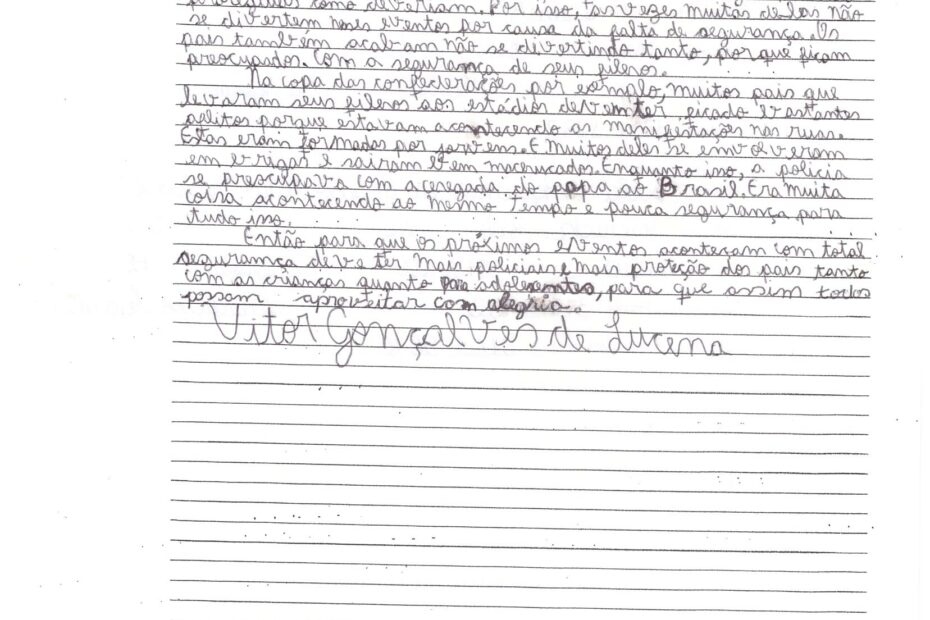 como deveriam. Por isso, as vezes muitas delas não
se divertem nesses eventos por causa da falta de segurança. Os
pais também acabam não se divertindo tanto, por que ficam
preocupados. Com a segurança de seus filhos.
Na copa das confederações por exemplo, muitos pais que
levaram seus filhos aos estádios devem ter ficado bastantes
aflitos porque estavam acontecendo as manifestações nas ruas.
Elas eram formadas por jovens. E muitos deles se envolveram
em brigas e sairam bem machucados. Enquanto isso, a policia
se preoculpava com a chegada do papa ao Brasil. Era muita
coisa acontecendo ao mesmo tempo e pouca segurança para
tudo isso.
Então para que os próximos eventos aconteçam com total
segurança deve ter mais policiais e mais proteção dos pais tanto
com as crianças quanto para adolecentes, para que assim todos
possam aproveitar com alegria.
Vitor Gonçalves de Lucena